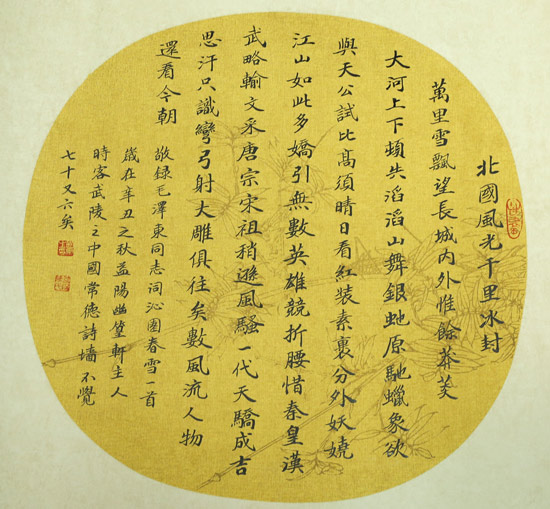 北國風光千里冰封
萬里雪飄望長城内外惟餘莽莽
大河上下頓失滔滔山舞銀虵原馳蠟象欲
與天公試比髙須晴日看紅装素裹分外妖嬈
江山如此多嬌引無數英雄競折腰惜秦皇漢
武略輸文采唐宗宋祖稍遜風騷一代天驕成吉
思汗只識彎弓射大雕俱往矣數風流人物
還看今朝
敬錄毛澤東同志詞沁園春雪一首
歲在辛丑之秋益陽幽篁軒主人
時客武陵之中國常德詩墻不覺
七十又六矣